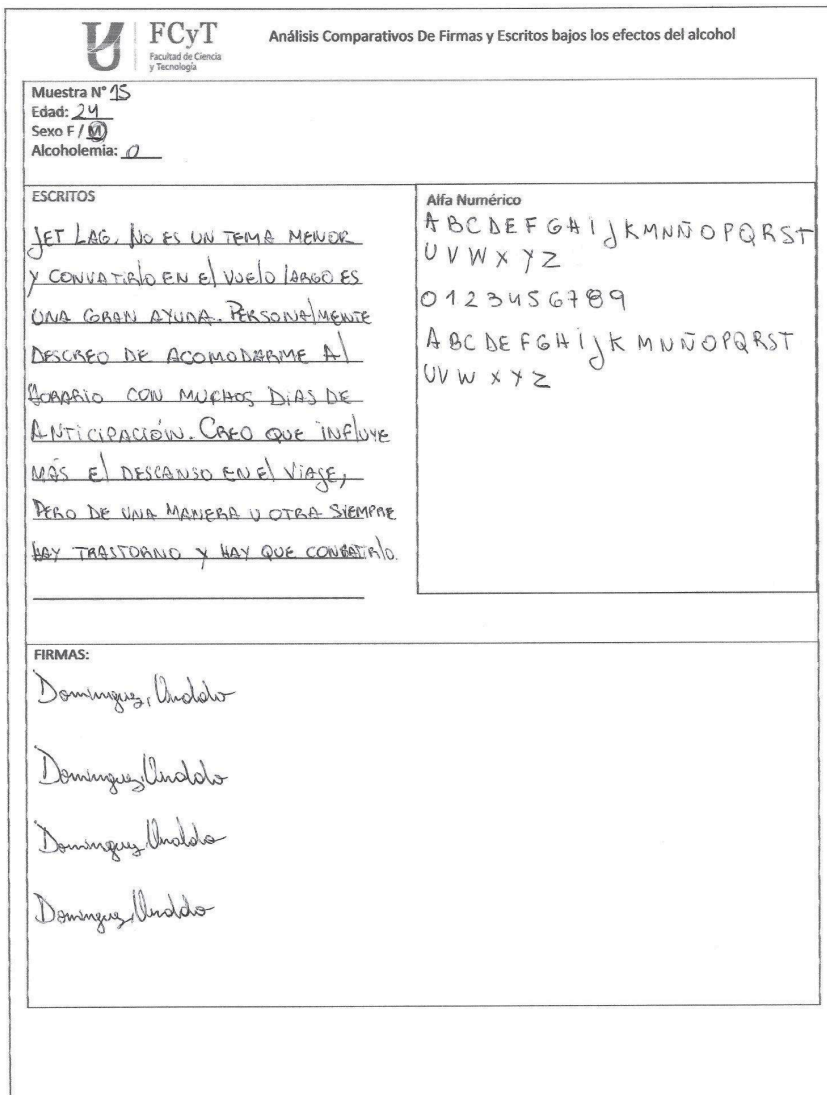 FCyT
Facultad de Ciencia
y Tecnología
Análisis Comparativos De Firmas y Escritos bajos los efectos del alcohol
Muestra N° 15
Edad: 24
Sexo F / M
Alcoholemia: 0
ESCRITOS
JET LAG. NO ES UN TEMA MENOR
Y CONVATIRlO EN El VUElO lARGO ES
UNA GRAN AYUDA. PERSONAlMENTE
DESCREO DE ACOMODARME Al
HORARIO CON MUCHOS DÍAS DE
ANTICIPACIÓN. CREO QUE INFlUYE
MÁS El DESCANSO EN El VIAJE,
PERO DE UNA MANERA U OTRA SIEMPRE
HAY TRASTORNO Y HAY QUE CONBATIRlO.
Alfa Numérico
A B C D E F G H I J K M N Ñ O P Q R S T
U V W X Y Z
0 1 2 3 4 5 6 7 8 9
A B C D E F G H I J K M N Ñ O P Q R S T
U V W X Y Z
FIRMAS:
Dominguez,
Dominguez,
Dominguez
Dominguez,